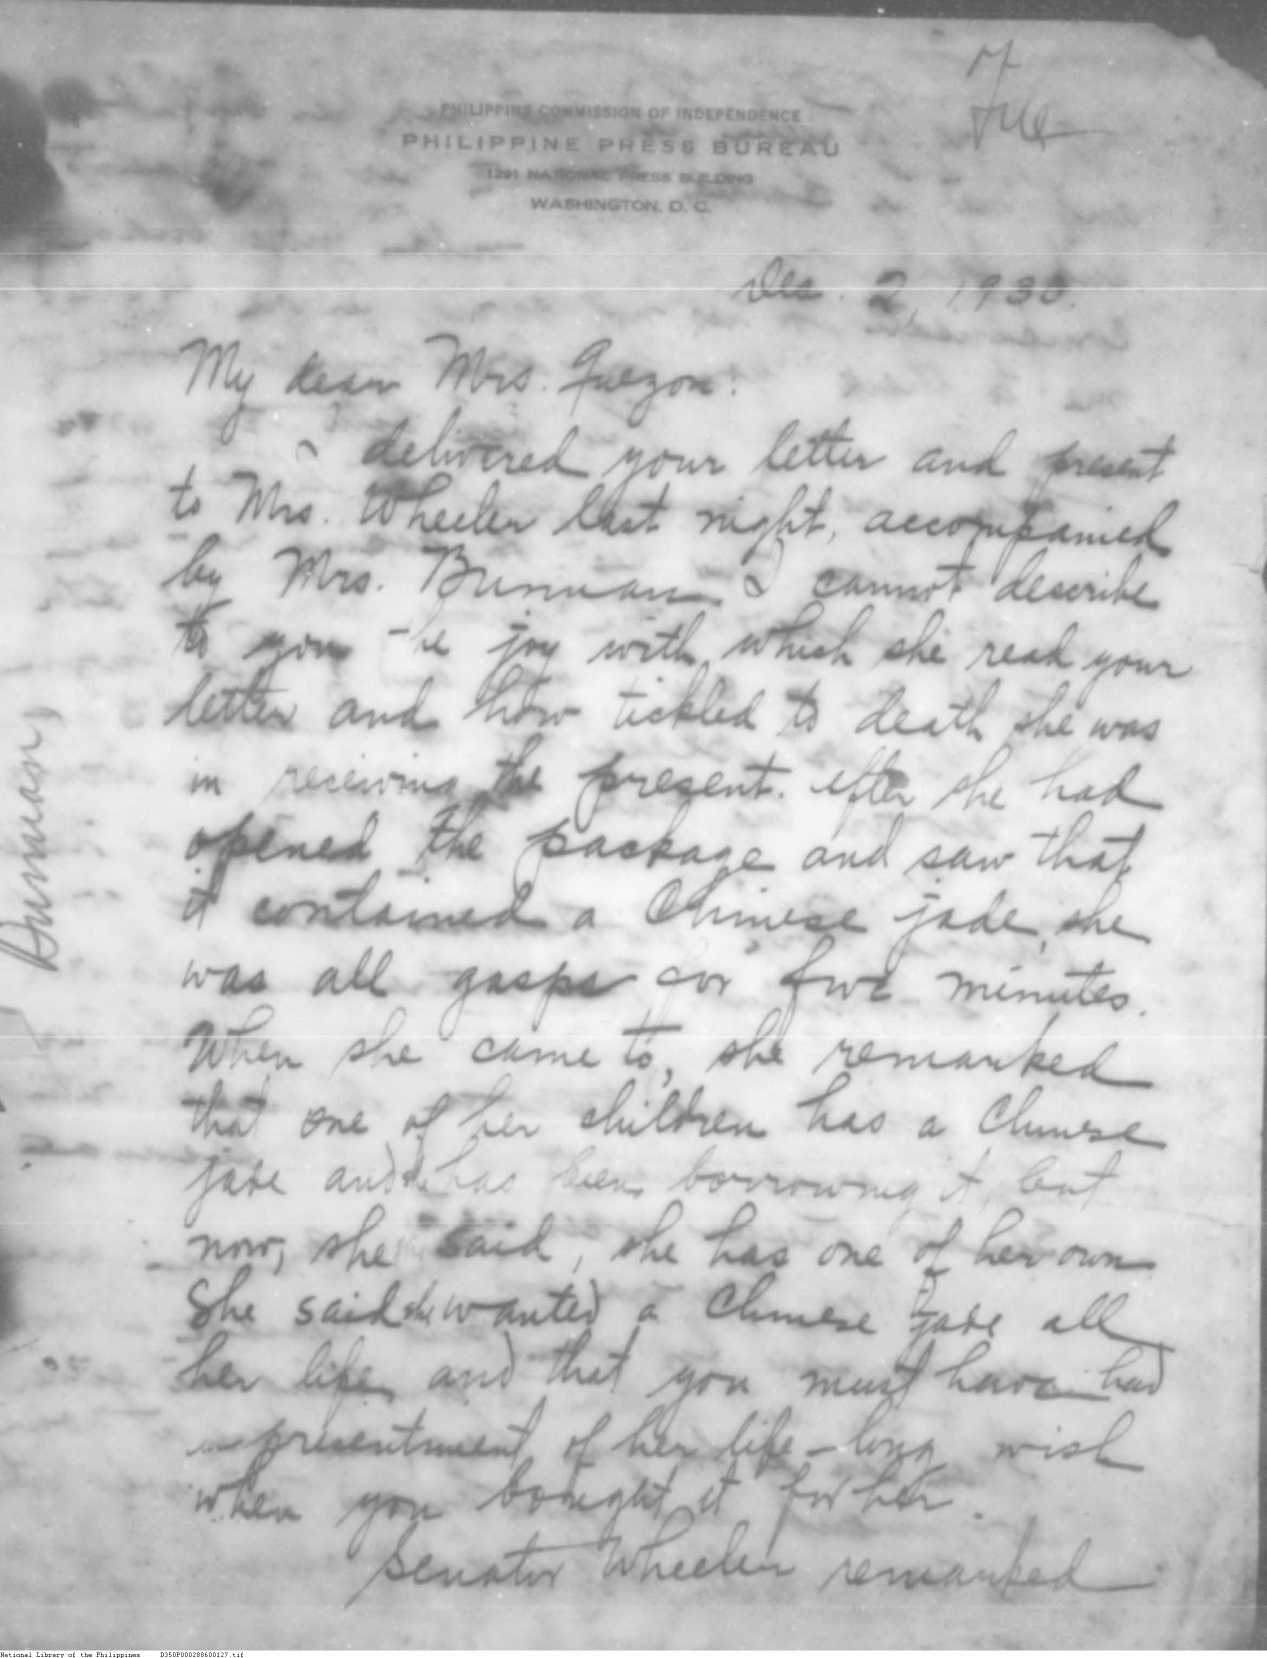 of
File
PHILIPPINE COMMISSION OF INDEPENDENCE
PHILIPPINE PRESS BUREAU
1291 NATIONAL PRESS BUILDING
WASHINGTON, D. C.
Dec. 2, 1930.
My dear Mrs. Quezon:
I delivered your letter and present
to Mrs. Wheeler last night, accompanied
by Mrs. Bunuan. I cannot describe
to you the joy with which she read your
letter and how tickled to death she was
in receiving the present. After she had
opened the package and saw that
it contained a Chinese jade, she
was all gasps for five minutes.
When she came to, she remarked
that one of her children has a Chinese
jade and has been borrowing it, but
now, she said, she has one of her own.
She said she wanted a Chinese jade all
her life and that you must have had
presentment of her life-long wish
when you bought it for her.
Senator Wheeler remarked
Bunuan,
National Library of the Philippines D350P000288600127.tif